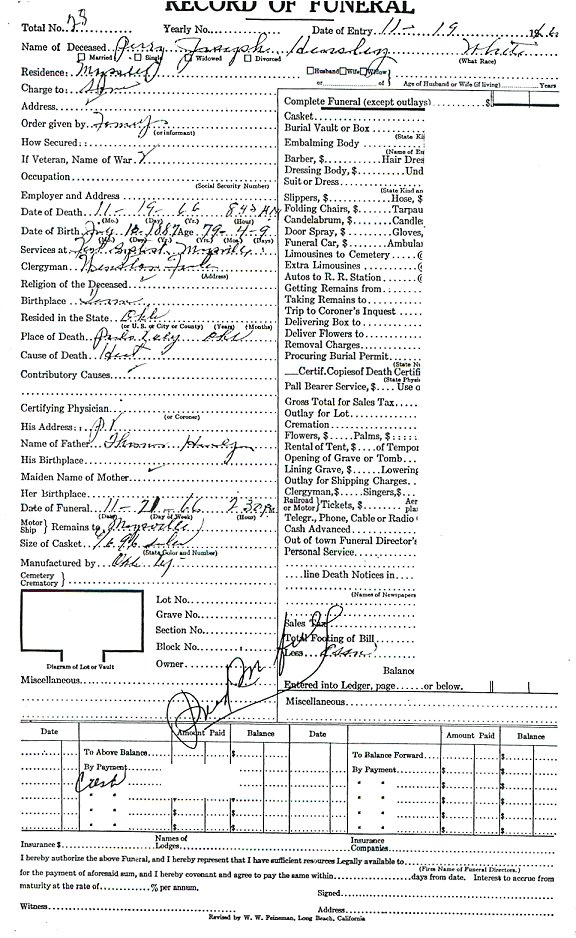 RECORD OF FUNERAL
Total No. 23 Yearly No. Date of Entry 11- 19 1966
Name of Deceased Perry Joseph Hensley White
Married Single Widowed Divorced (What Race)
Residence: Maysville Husband Wife Widow
or of Age of Husband or Wife (if living) Years
Charge to: Same
Address
Order given by Family
(or informant)
How Secured:
If Veteran, Name of War
Occupation
(Social Security Number)
Employer and Address
Date of Death 11- 19- 66 8 45 AM
(Mo.) (Day) (Yr.) (Hour)
Date of Birth July 10- 1887 Age 79- 4- 9
(Mo.) (Day) (Yr.) (Yrs.) (Mos.) (Days)
Services at First Baptist Maysville
Clergyman
(Address)
Religion of the Deceased
Birthplace
Resided in the State Okla
(or U. S. or City or County) (Years) (Months)
Place of Death Pauls Valley Okla
Cause of Death Heart
Contributory Causes
Certifying Physician
(or Coroner)
His Address:
Name of Father Thomas Hensley
His Birthplace
Maiden Name of Mother
Her Birthplace
Date of Funeral 11- 21- 66 2 30 PM
(Date) (Day of Week) (Hour)
Motor Ship } Remains to Maysville
Size of Casket 6 9/6 Silver
(State Color and Number)
Manufactured by Okla
Cemetery
Crematory }
Lot No.
Grave No.
Section No.
Block No.
Owner
Diagram of Lot or Vault
Miscellaneous
Complete Funeral (except outlays) $
Casket
Burial Vault or Box
(State Ki
Embalming Body
(Name of En
Barber, $ Hair Dres
Dressing Body, $ Und
Suit or Dress
(State Kind an
Slippers, $ Hose, $
Folding Chairs, $ Tarpau
Candelabrum, $ Candle
Door Spray, $ Gloves,
Funeral Car, $ Ambula
Limousines to Cemetery @
Extra Limousines @
Autos to R. R. Station @
Getting Remains from
Taking Remains to
Trip to Coroner's Inquest
Delivering Box to
Deliver Flowers to
Removal Charges
Procuring Burial Permit
(State N
Certif. Copies of Death Certifi
(State Physi
Pall Bearer Service, $ Use o
Gross Total for Sales Tax
Outlay for Lot
Cremation
Flowers, $ Palms, $
Rental of Tent, $ of Tempor
Opening of Grave or Tomb
Lining Grave, $ Lowering
Outlay for Shipping Charges
Clergyman, $ Singers, $
Railroad or Motor } Tickets, $ Aer pla
Telegr., Phone, Cable or Radio
Cash Advanced
Out of town Funeral Director's
Personal Service
line Death Notices in
(Names of Newspapers
Sales Tax
Total Footing of Bill
Less
Balance
Entered into Ledger, page or below.
Miscellaneous
Paid in full
Date Amount Paid Balance Date Amount Paid Balance
To Above Balance $ To Balance Forward $
By Payment By Payment $ $
Cash " " $ $
" " " " $ $
" " $ " " $ $
" " $ " " $ $
Insurance $ Names of Lodges Insurance Companies
I hereby authorize the above Funeral, and I hereby represent that I have sufficient resources Legally available to
(Firm Name of Funeral Directors.)
for the payment of aforesaid sum, and I hereby covenant and agree to pay the same within days from date. Interest to accrue from
maturity at the rate of % per annum.
Signed
Witness Address
Revised by W. W. Feineman, Long Beach, California